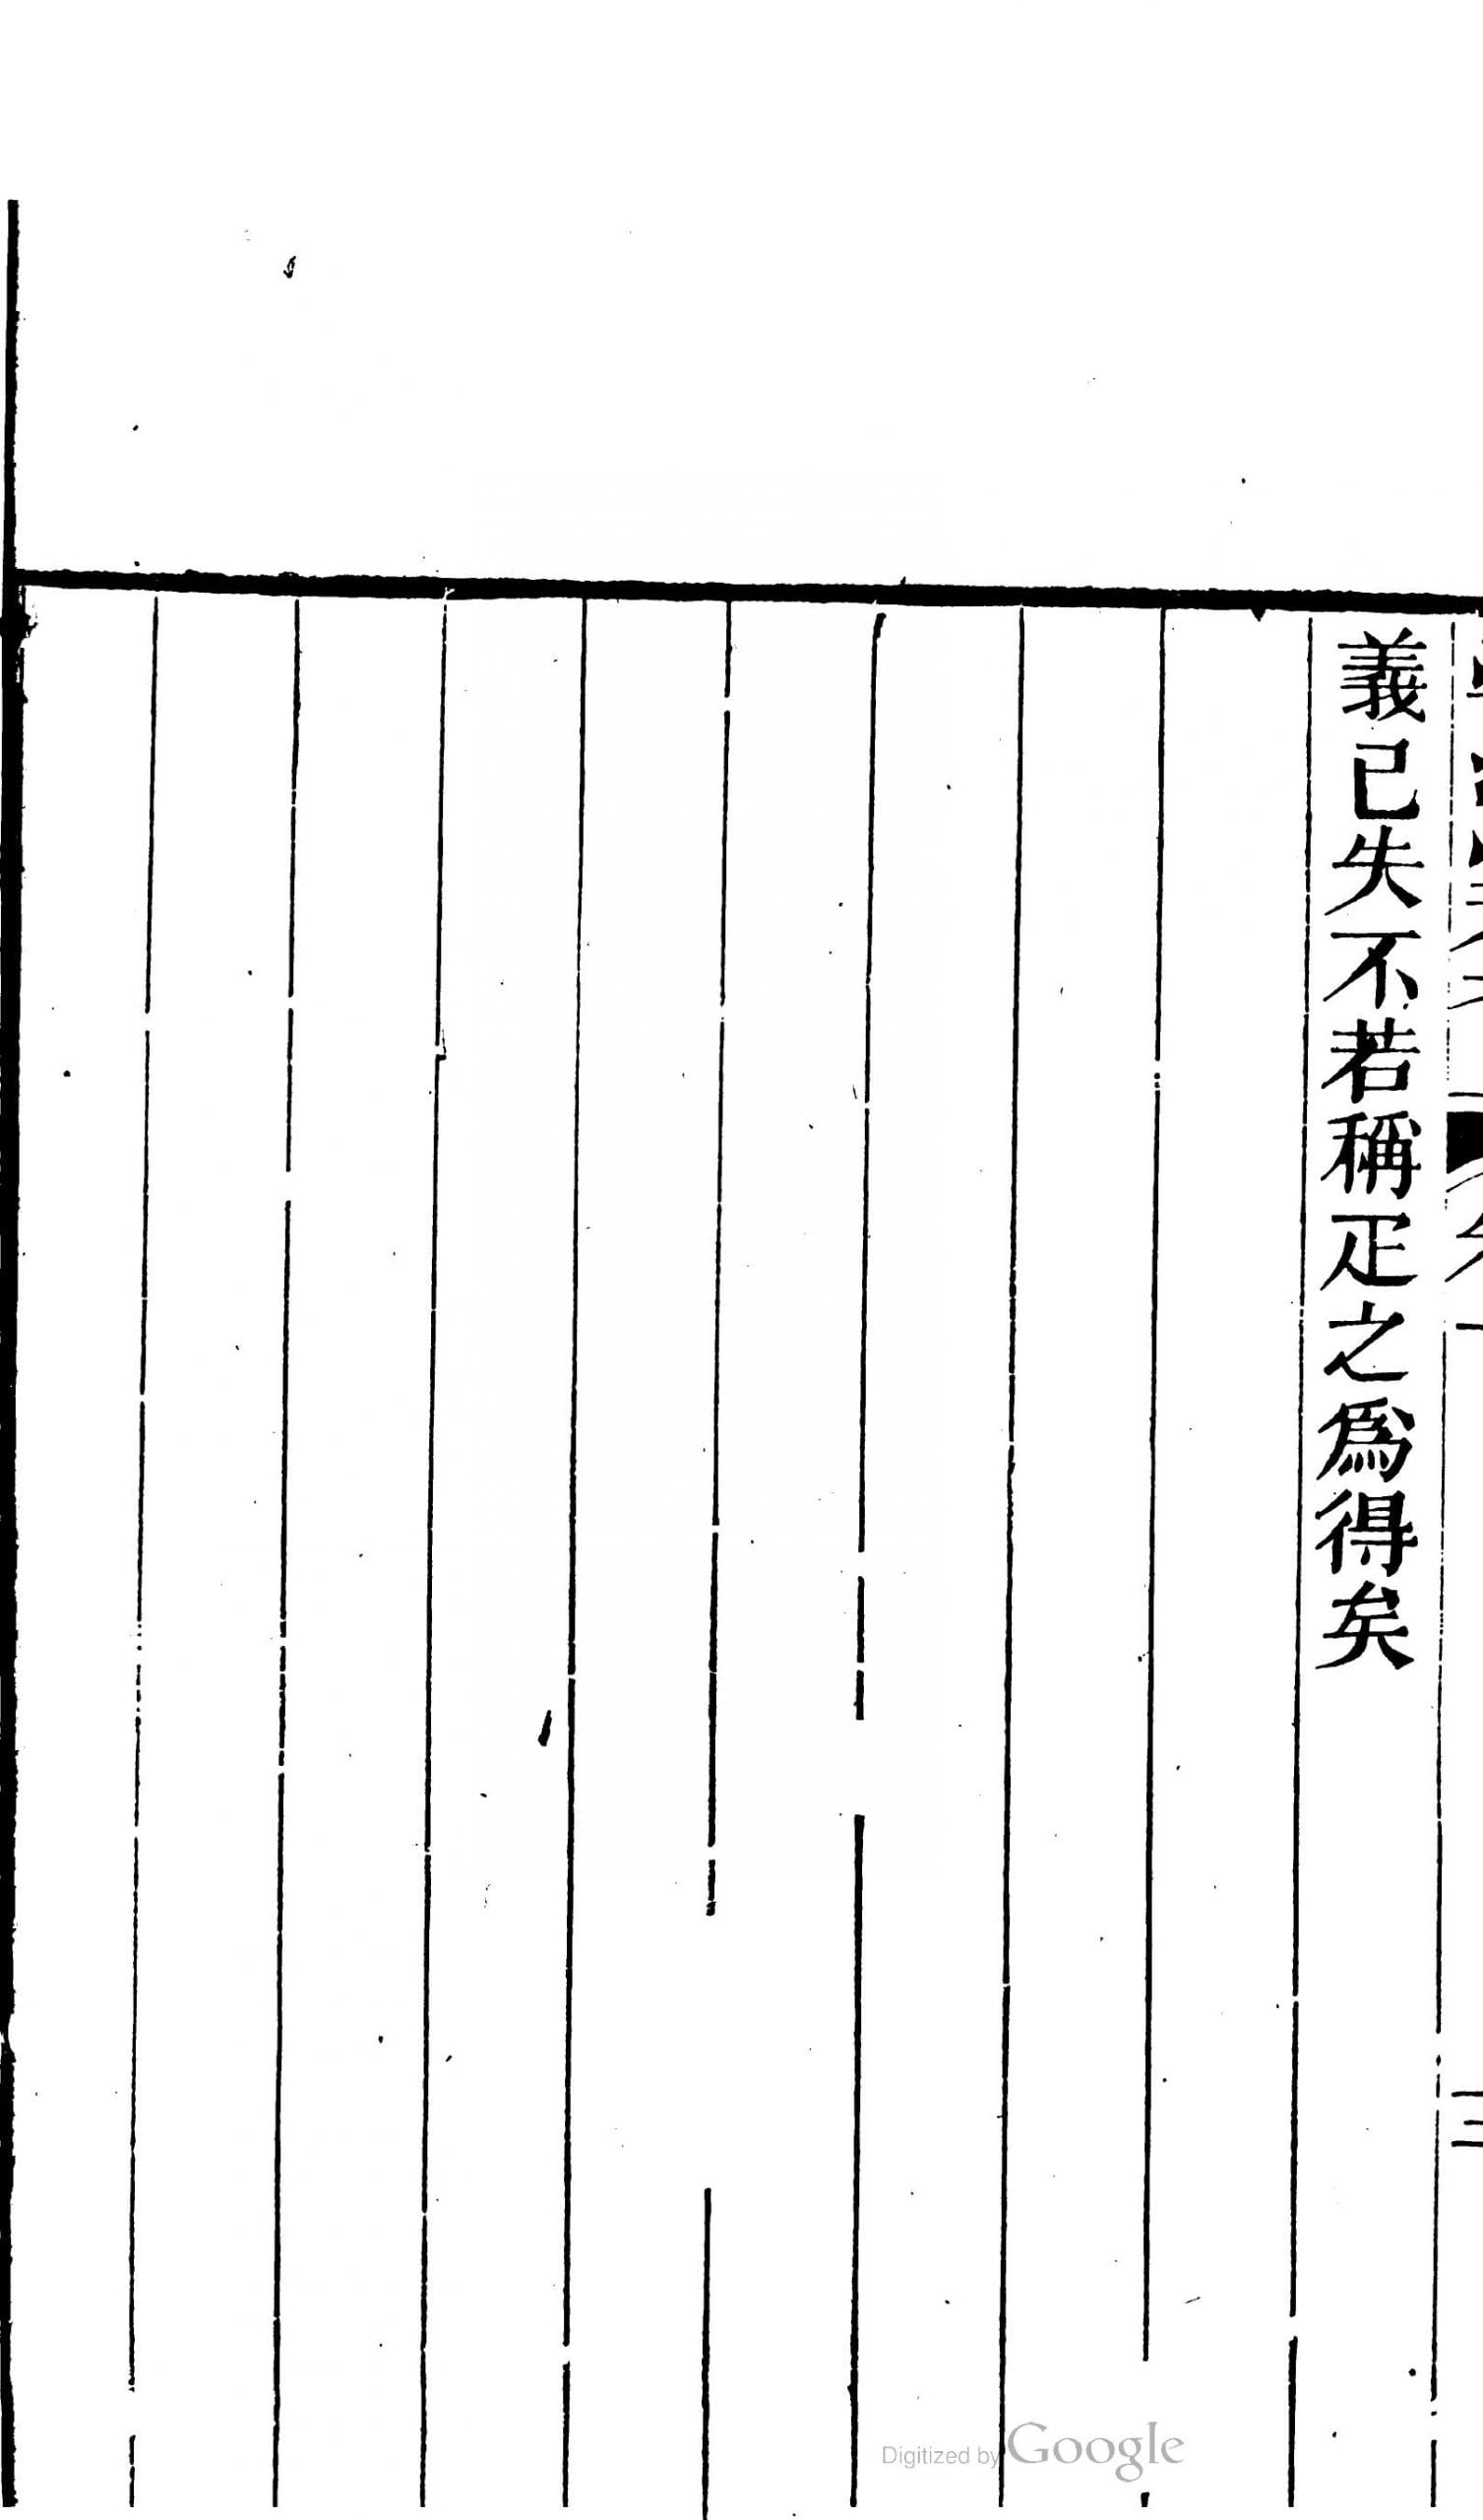 義已失不若稱疋之爲得矣
三
Digitized by Google